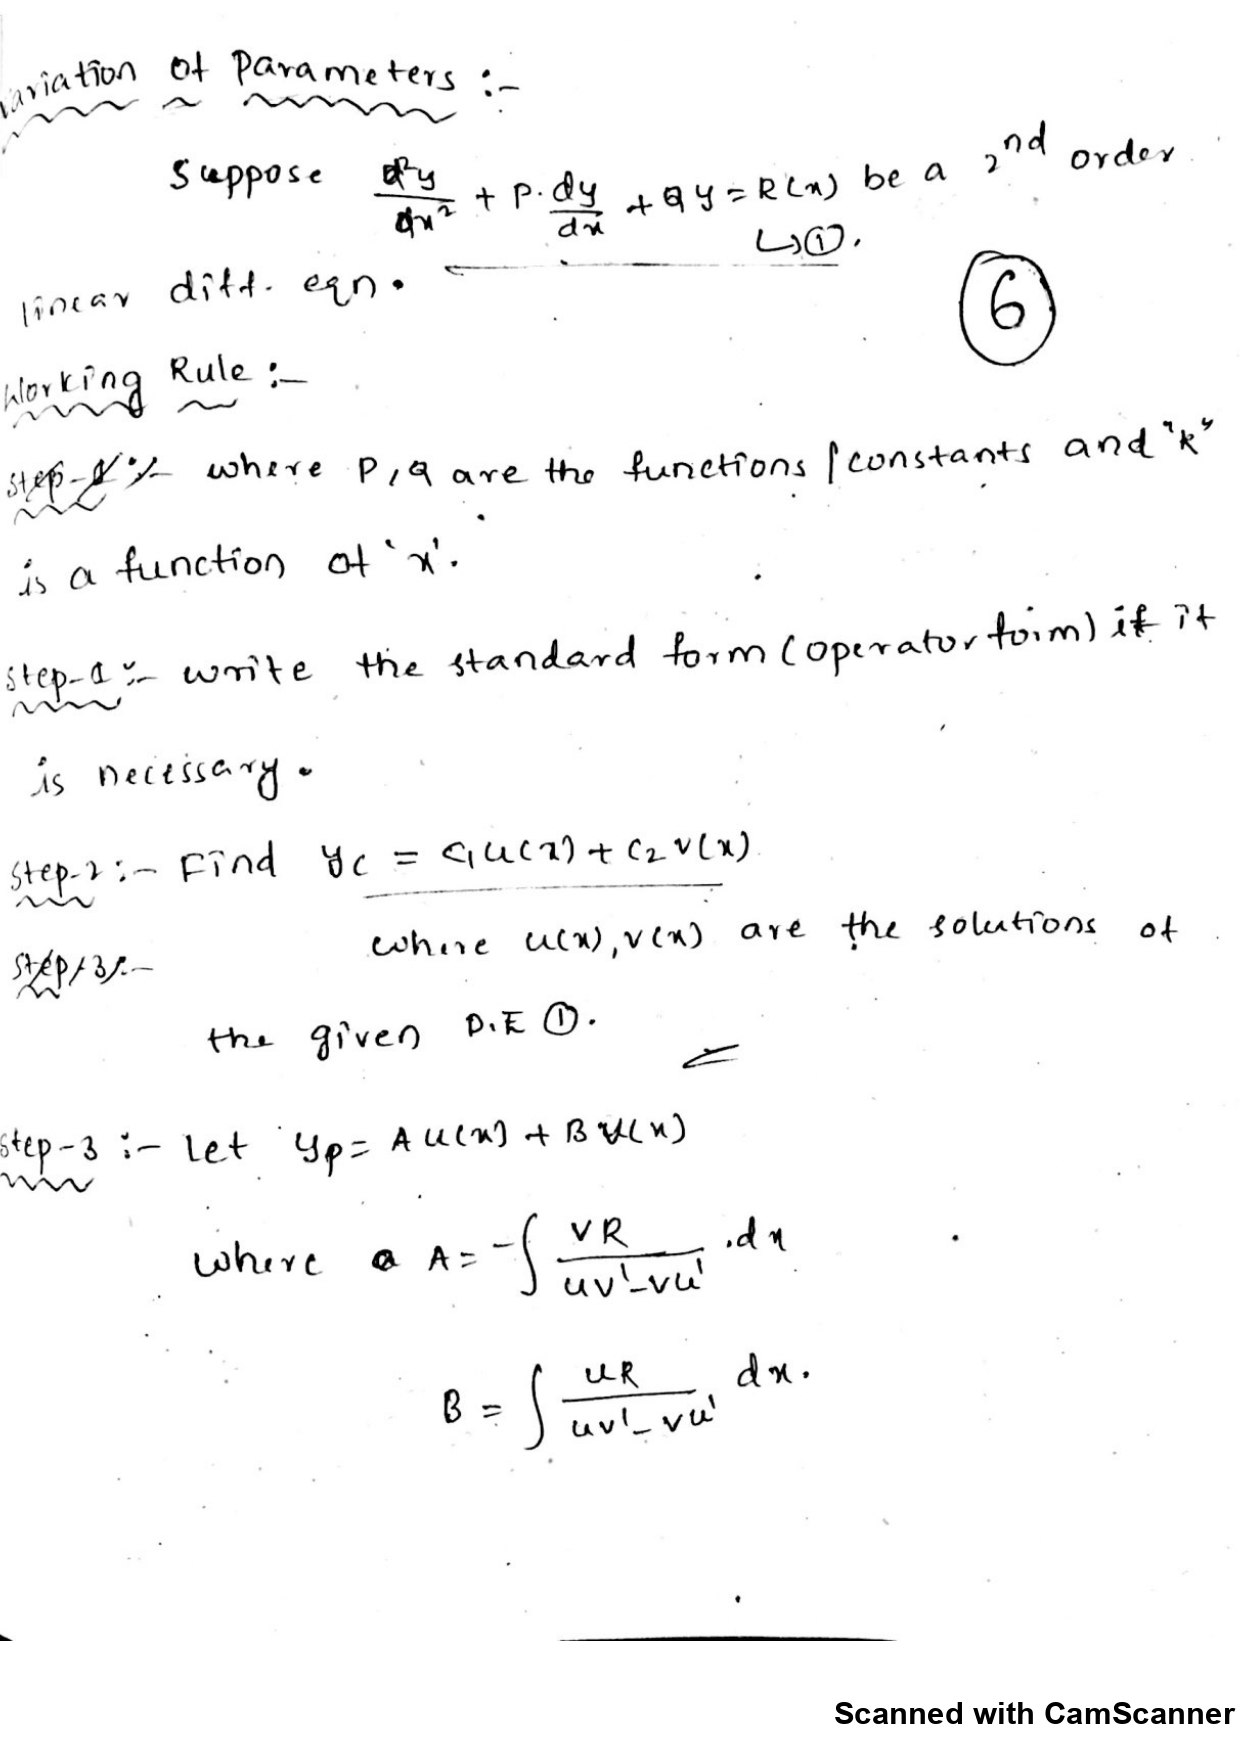 Variation of Parameters :-
Suppose d²y/dx² + P. dy/dx + Qy = R(x) be a 2nd order
↳①.
linear diff. eqn.
6
Working Rule :-
Step-1 :- where P, Q are the functions / constants and "R"
is a function of 'x'.
Step-1 :- write the standard form (operator form) if it
is necessary.
Step-2 :- Find yc = c1 u(x) + c2 v(x)
where u(x), v(x) are the solutions of
Step-3 :-
the given D.E ①.
Step-3 :- Let yp = A u(x) + B v(x)
where A = -∫ VR / uv'-vu' .dx
B = ∫ uR / uv'-vu' dx.
Scanned with CamScanner